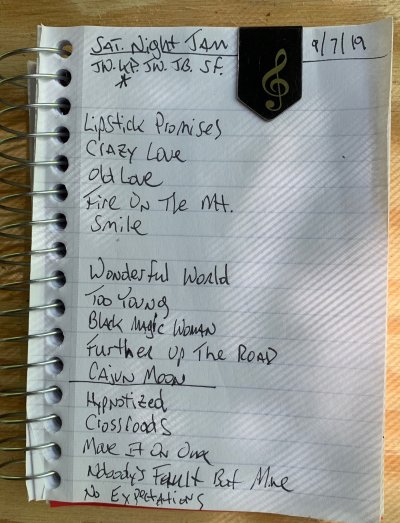 SAT. Night JAM 9/7/19
JW. KP. JW. JB. SF.
*
Lipstick Promises
CRAZY Love
Old Love
Fire On The Mt.
Smile
Wonderful World
Too Young
Black Magic Woman
Further Up The ROAD
CAJUN MOON
Hypnotized
Crossroads
Move It On Over
Nobody's Fault But Mine
No Expectations